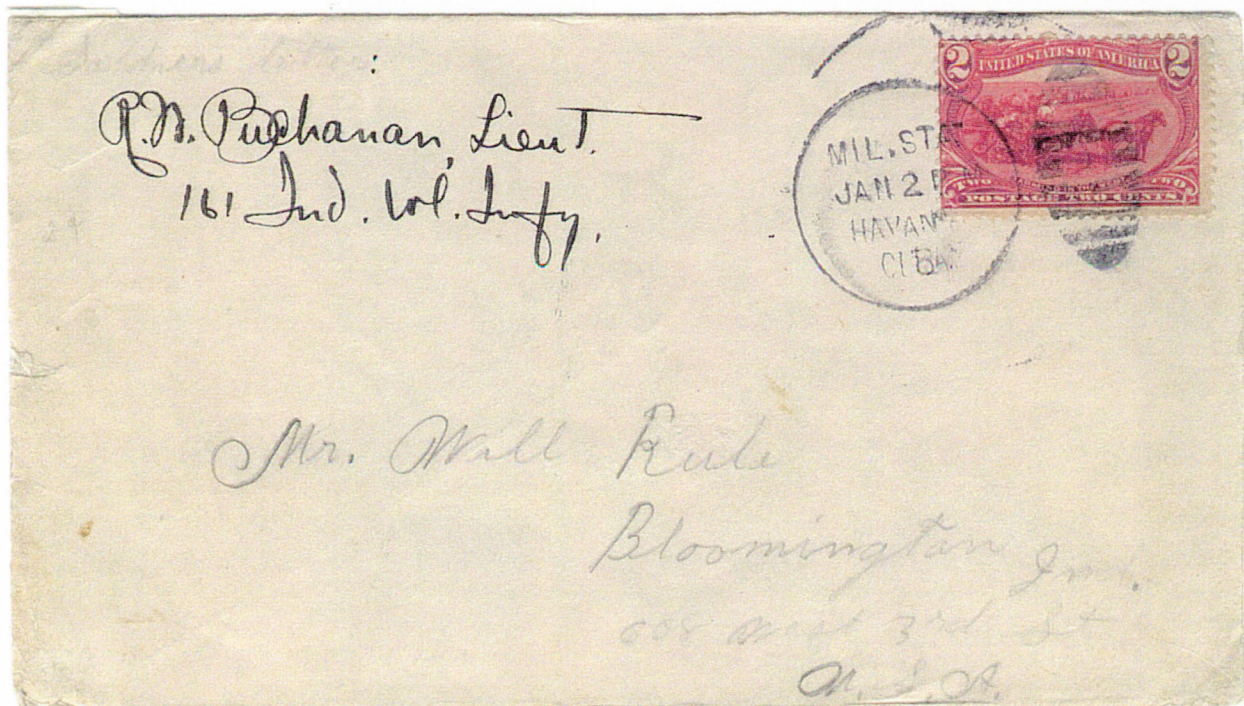 Soldiers letter
R. N. Buchanan, Lieut.
161 Ind. Vol. Infy.
MIL. STA
JAN 2
HAVANA
CUBA
2 UNITED STATES OF AMERICA 2
TWO TWO
POSTAGE TWO CENTS
Mr. Will Rule
Bloomington Ind.
608 West 3rd St
U.S.A.